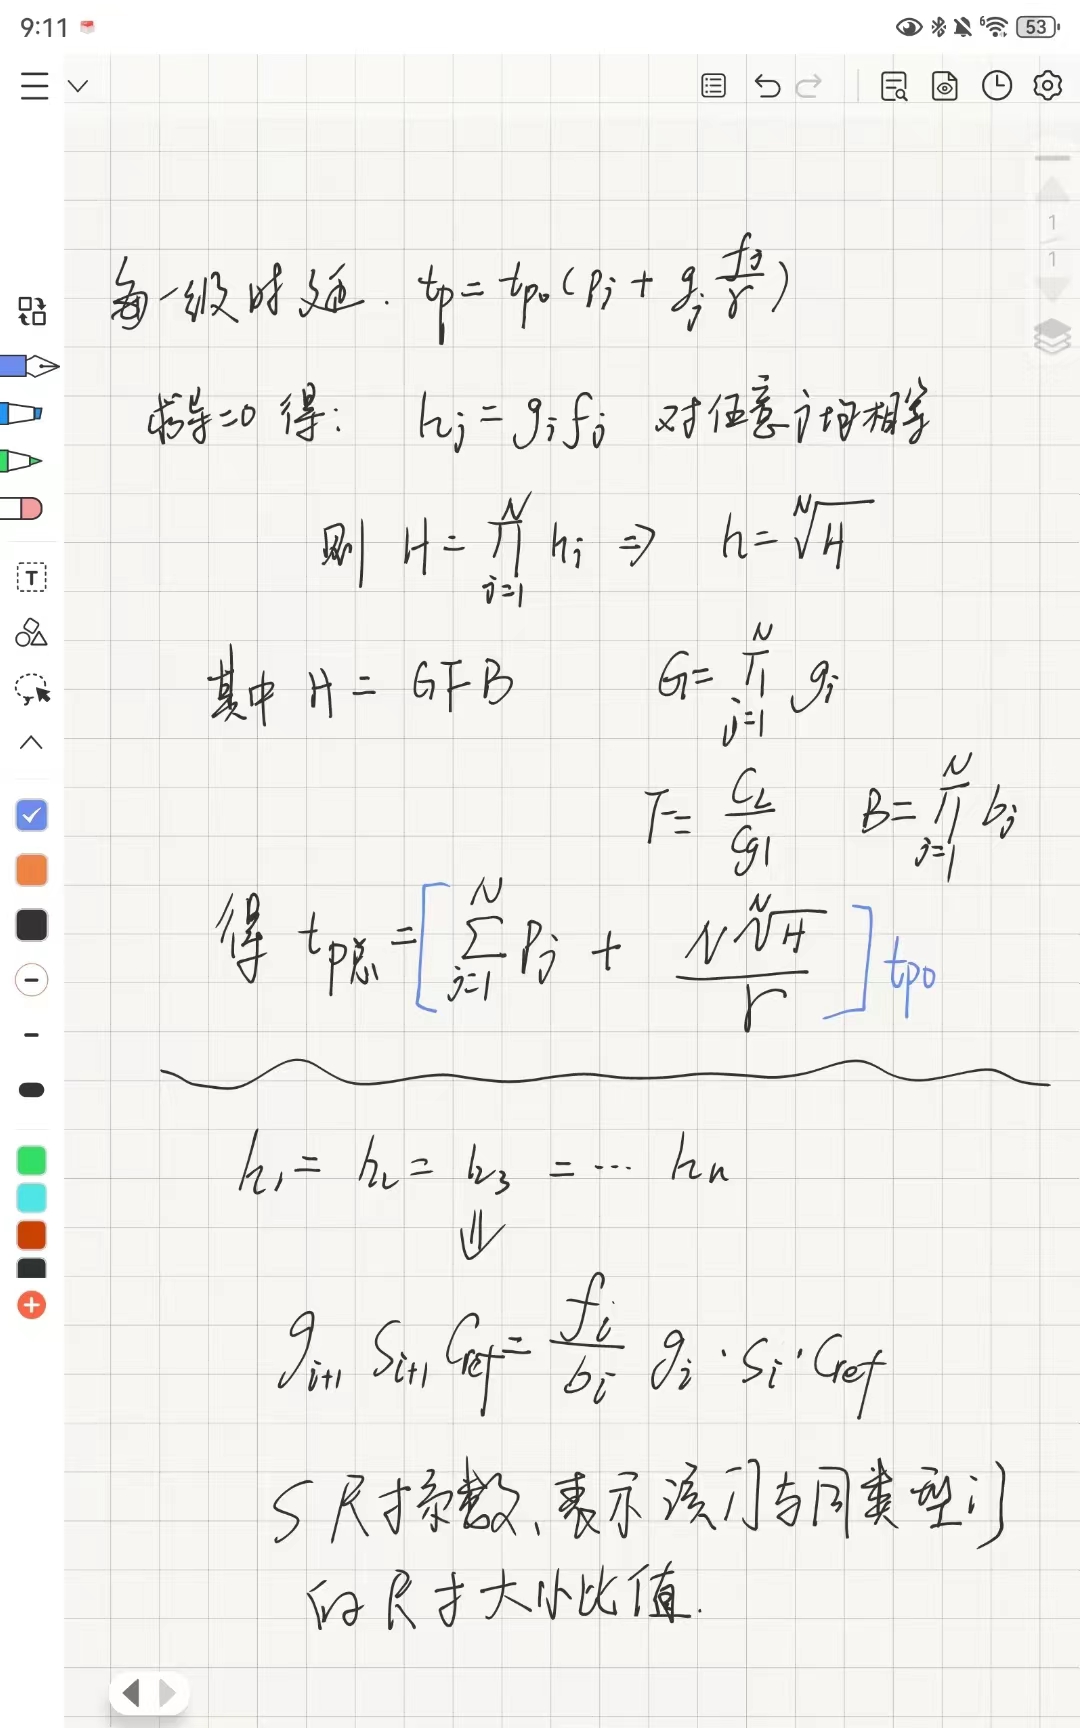 9:11
6
53
1
1
T
每一级时延. tp = tp0 ( pj + gj fj/γ )
求导=0 得: hj = gj fj 对任意 j 均相等
则 H = ∏_{j=1}^{N} hj ⇒ h = ᴺ√H
其中 H = GFB G = ∏_{j=1}^{N} gj
F = CL/Cg1 B = ∏_{j=1}^{N} bj
得 tp总 = [ ∑_{j=1}^{N} Pj + N ᴺ√H / γ ] tp0
h1 = h2 = h3 = … hn
⇓
g_{i+1} S_{i+1} Cref = fi/bi gi · Si · Cref
S 尺寸系数、表示该门与同类型门
的尺寸大小比值.